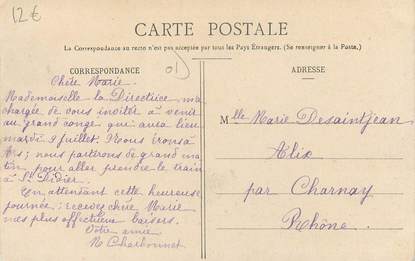 12€
CARTE POSTALE
La Correspondance au recto n'est pas acceptée par tous les Pays Étrangers. (Se renseigner à la Poste.)
CORRESPONDANCE
ADRESSE
Chère Marie
Mademoiselle la Directrice, m'a
chargée de vous inviter à venir
au grand congé qui aura lieu
mardi 9 juillet. Nous irons à
; nous partirons de grand ma
tin, pour aller prendre le train
à St Didier.
En attendant cette heureuse
journée; recevez chère Marie
mes plus affectueux baisers.
Votre amie
N Charbonnet
Mlle Marie Desaintjean
Alix
par Charnay
Rhône